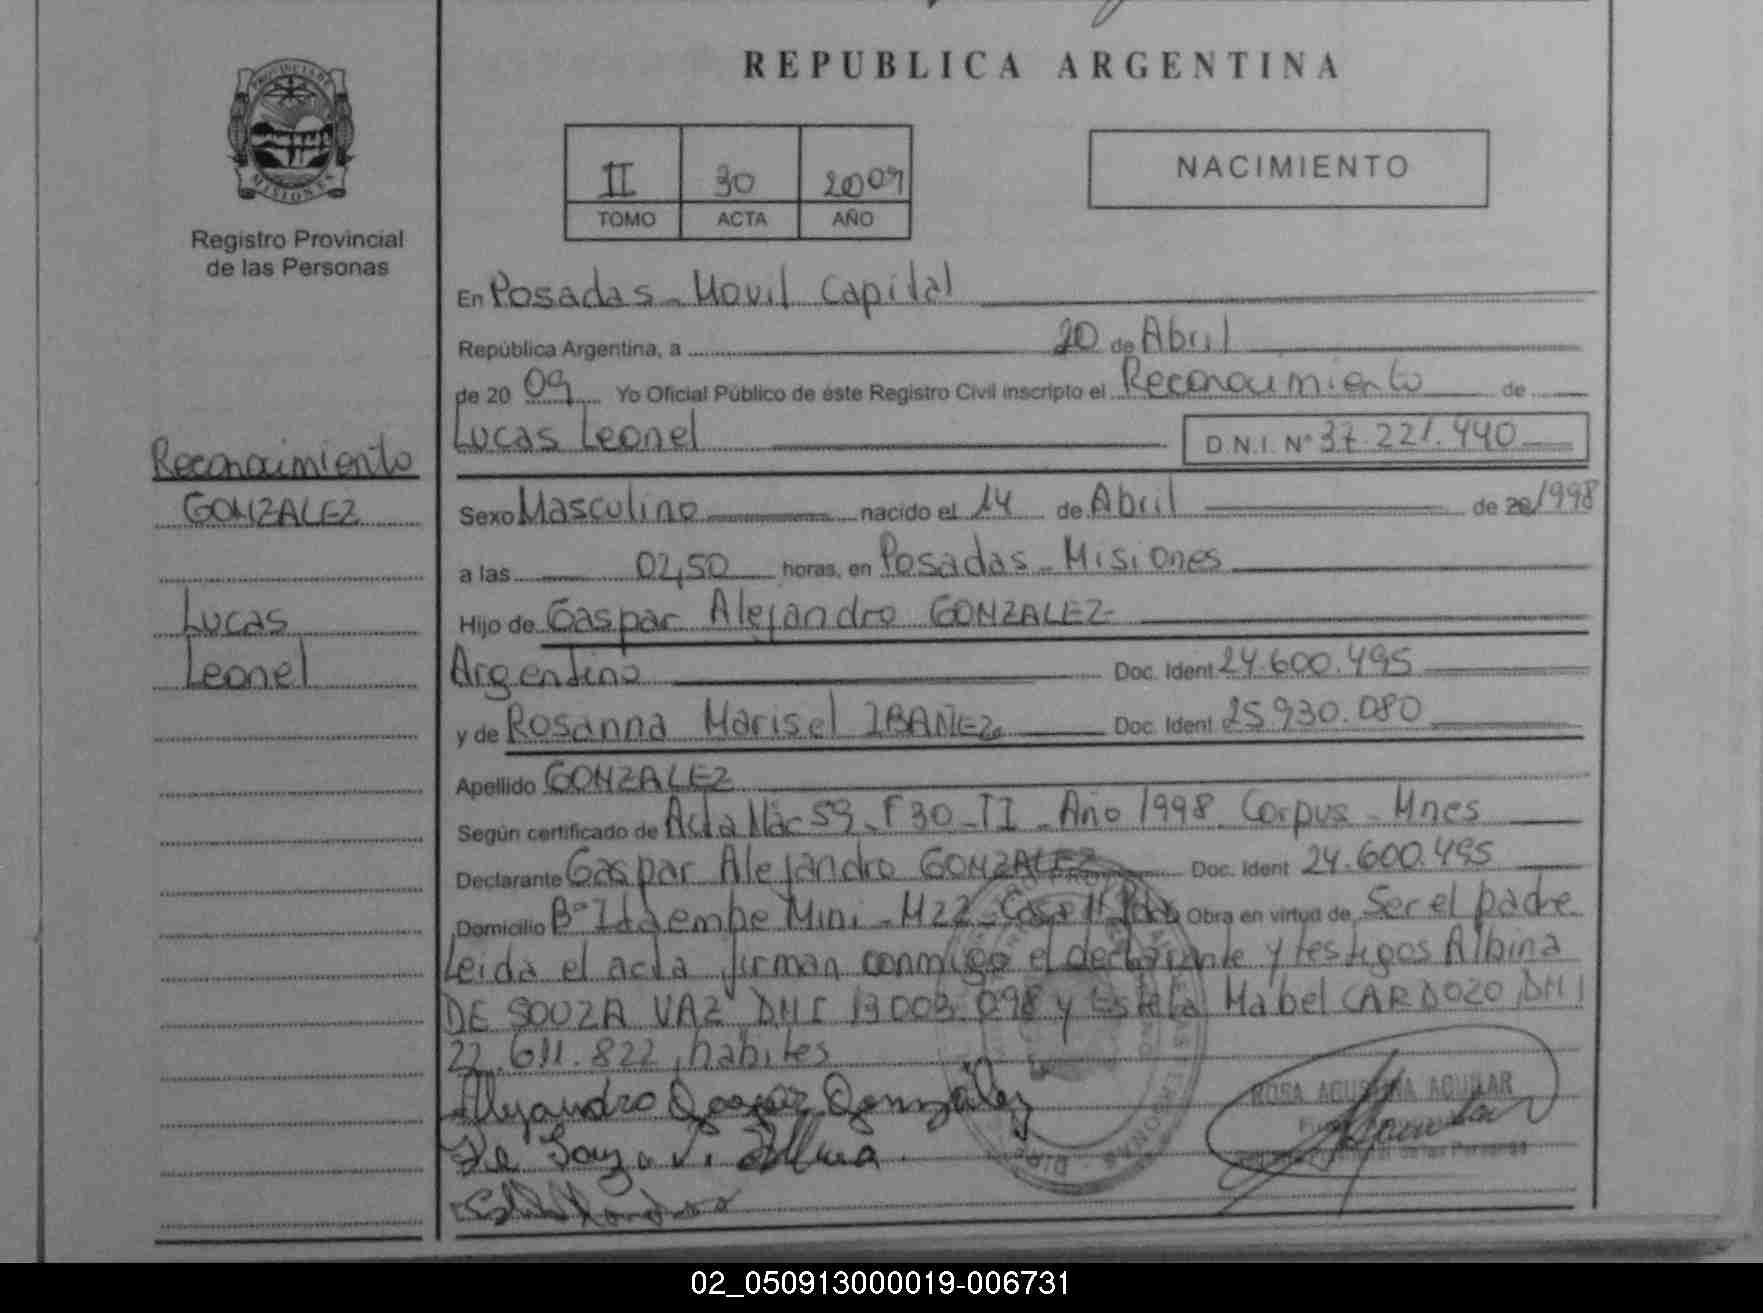 REPUBLICA ARGENTINA
PROVINCIA DE
MISIONES
Registro Provincial
de las Personas
II 30 2009
TOMO ACTA AÑO
NACIMIENTO
En Posadas - Movil Capital
República Argentina, a 20 de Abril
de 20 09 Yo Oficial Público de éste Registro Civil inscripto el Reconocimiento de
Lucas Leonel D.N.I. N° 37.221.440
Reconocimiento
GONZALEZ
Lucas
Leonel
Sexo Masculino nacido el 14 de Abril de 20/1998
a las 02,50 horas, en Posadas - Misiones
Hijo de Gaspar Alejandro GONZALEZ
Argentino Doc. Ident 24.600.495
y de Rosanna Marisel IBAÑEZ Doc. Ident 25.930.080
Apellido GONZALEZ
Según certificado de Acta Nac 59 - F 30 - TI - Año 1998 Corpus - Mnes
Declarante Gaspar Alejandro GONZALEZ Doc. Ident 24.600.495
Domicilio B° Itaembe Mini - M22 - Casa Obra en virtud de Ser el padre
Leida el acta firman conmigo el declarante y testigos Albina
DE SOUZA VAZ DNI 13.003.098 y Estela Mabel CARDOZO DNI
22.611.822, habiles
Alejandro Gaspar Gonzalez
De Souza V. Albina
ROSA AGUSTINA AGUILAR
de las Personas
02_050913000019-006731